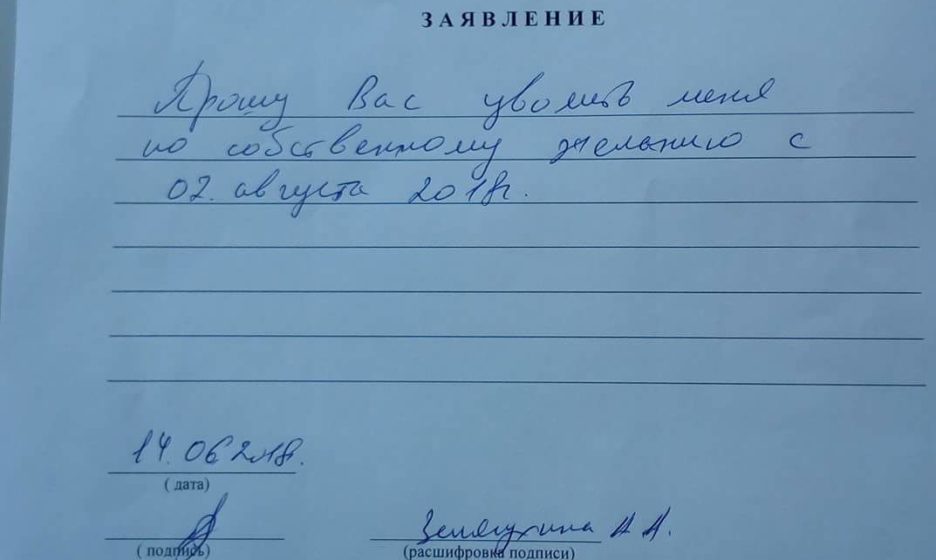 ЗАЯВЛЕНИЕ
Прошу Вас уволить меня
по собственному желанию с
02. августа 2018г.
14.06 2018.
( дата)
( подпись)
А.А.
(расшифровка подписи)